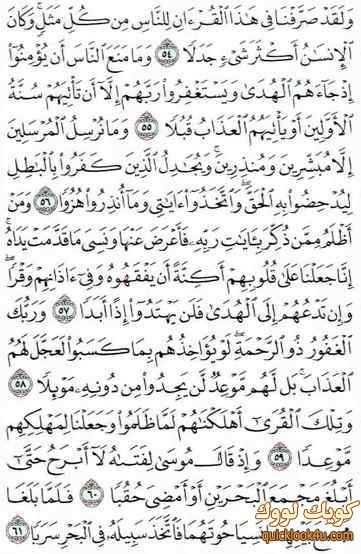 وَلَقَدْ صَرَّفْنَا فِى هَٰذَا ٱلْقُرْءَانِ لِلنَّاسِ مِن كُلِّ مَثَلٍ ۚ وَكَانَ
ٱلْإِنسَٰنُ أَكْثَرَ شَىْءٍ جَدَلًا ٥٤ وَمَا مَنَعَ ٱلنَّاسَ أَن يُؤْمِنُوٓا۟
إِذْ جَآءَهُمُ ٱلْهُدَىٰ وَيَسْتَغْفِرُوا۟ رَبَّهُمْ إِلَّآ أَن تَأْتِيَهُمْ سُنَّةُ
ٱلْأَوَّلِينَ أَوْ يَأْتِيَهُمُ ٱلْعَذَابُ قُبُلًا ٥٥ وَمَا نُرْسِلُ ٱلْمُرْسَلِينَ
إِلَّا مُبَشِّرِينَ وَمُنذِرِينَ ۚ وَيُجَٰدِلُ ٱلَّذِينَ كَفَرُوا۟ بِٱلْبَٰطِلِ
لِيُدْحِضُوا۟ بِهِ ٱلْحَقَّ ۖ وَٱتَّخَذُوٓا۟ ءَايَٰتِى وَمَآ أُنذِرُوا۟ هُزُوًا ٥٦ وَمَنْ
أَظْلَمُ مِمَّن ذُكِّرَ بِـَٔايَٰتِ رَبِّهِۦ فَأَعْرَضَ عَنْهَا وَنَسِىَ مَا قَدَّمَتْ يَدَاهُ ۚ
إِنَّا جَعَلْنَا عَلَىٰ قُلُوبِهِمْ أَكِنَّةً أَن يَفْقَهُوهُ وَفِىٓ ءَاذَانِهِمْ وَقْرًا ۖ
وَإِن تَدْعُهُمْ إِلَى ٱلْهُدَىٰ فَلَن يَهْتَدُوٓا۟ إِذًا أَبَدًا ٥٧ وَرَبُّكَ
ٱلْغَفُورُ ذُو ٱلرَّحْمَةِ ۖ لَوْ يُؤَاخِذُهُم بِمَا كَسَبُوا۟ لَعَجَّلَ لَهُمُ
ٱلْعَذَابَ ۚ بَل لَّهُم مَّوْعِدٌ لَّن يَجِدُوا۟ مِن دُونِهِۦ مَوْئِلًا ٥٨
وَتِلْكَ ٱلْقُرَىٰٓ أَهْلَكْنَٰهُمْ لَمَّا ظَلَمُوا۟ وَجَعَلْنَا لِمَهْلِكِهِم
مَّوْعِدًا ٥٩ وَإِذْ قَالَ مُوسَىٰ لِفَتَىٰهُ لَآ أَبْرَحُ حَتَّىٰٓ
أَبْلُغَ مَجْمَعَ ٱلْبَحْرَيْنِ أَوْ أَمْضِىَ حُقُبًا ٦٠ فَلَمَّا بَلَغَا
حُوتَهُمَا فَٱتَّخَذَ سَبِيلَهُۥ فِى ٱلْبَحْرِ سَرَبًا ٦١
كويك لووك
quicklook4u.com